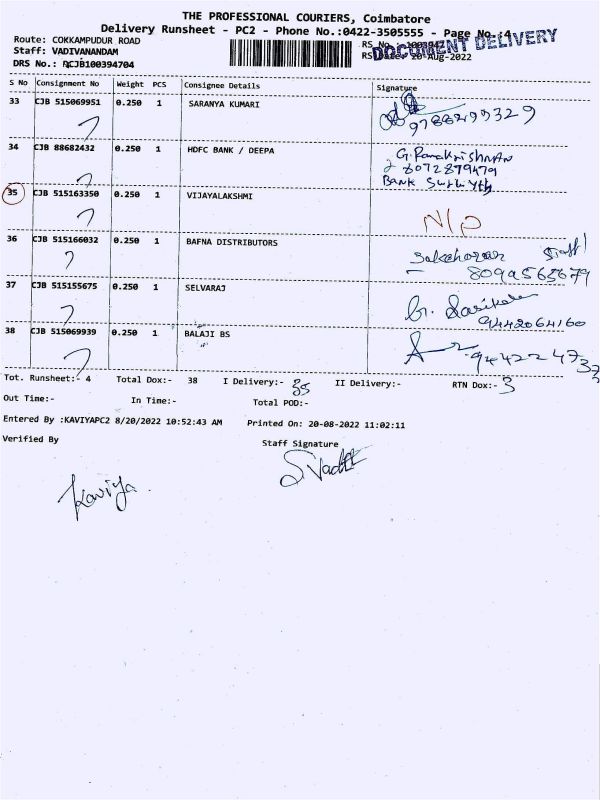 THE PROFESSIONAL COURIERS, Coimbatore
Delivery Runsheet - PC2 - Phone No.:0422-3505555 - Page No.:4
Route: COKKAMPUDUR ROAD
Staff: VADIVANANDAM
DRS No.: RCJB100394704
RS No.
DOCUMENT DELIVERY
20-Aug-2022
S No Consignment No Weight PCS Consignee Details Signature
33 CJB 515069951 0.250 1 SARANYA KUMARI
9788299329
34 CJB 88682432 0.250 1 HDFC BANK / DEEPA
G. Ramakrishnan
8072879479
Bank
35 CJB 515163350 0.250 1 VIJAYALAKSHMI
N/P
36 CJB 515166032 0.250 1 BAFNA DISTRIBUTORS
Staff
37 CJB 515155675 0.250 1 SELVARAJ
9442064160
38 CJB 515069939 0.250 1 BALAJI BS
Tot. Runsheet:- 4 Total Dox:- 38 I Delivery:- 35 II Delivery:- RTN Dox:- 3
Out Time:- In Time:- Total POD:-
Entered By :KAVIYAPC2 8/20/2022 10:52:43 AM Printed On: 20-08-2022 11:02:11
Verified By Staff Signature
Kaviya